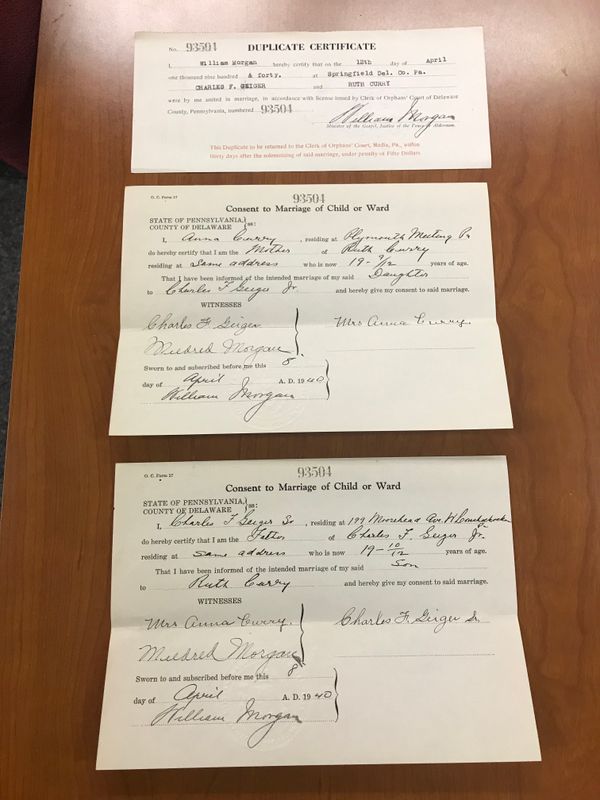 No. 93504 DUPLICATE CERTIFICATE
I, William Morgan hereby certify that on the 12th day of April
one thousand nine hundred & forty, at Springfield Del. Co. Pa.
CHARLES F. GEIGER and RUTH CURRY
were by me united in marriage, in accordance with license issued by Clerk of Orphans' Court of Delaware
County, Pennsylvania, numbered 93504 William Morgan
Minister of the Gospel, Justice of the Peace or Alderman.
This Duplicate to be returned to the Clerk of Orphans' Court, Media, Pa., within
thirty days after the solemnizing of said marriage, under penalty of Fifty Dollars.
O. C. Form 17
93504
Consent to Marriage of Child or Ward
STATE OF PENNSYLVANIA,
COUNTY OF DELAWARE ss:
I, Anna Curry, residing at Plymouth Meeting Pa
do hereby certify that I am the Mother of Ruth Curry
residing at same address who is now 19-7/12 years of age.
That I have been informed of the intended marriage of my said Daughter
to Charles F Geiger Jr. and hereby give my consent to said marriage.
WITNESSES
Charles F Geiger Mrs Anna Curry.
Mildred Morgan
Sworn to and subscribed before me this 8
day of April A. D. 1940
William Morgan
O. C. Form 17
93504
Consent to Marriage of Child or Ward
STATE OF PENNSYLVANIA,
COUNTY OF DELAWARE ss:
I, Charles F Geiger Sr, residing at 199 Moorehead Ave. W Conshohocken Pa
do hereby certify that I am the Father of Charles F. Geiger Jr.
residing at same address who is now 19-10/12 years of age.
That I have been informed of the intended marriage of my said Son
to Ruth Curry and hereby give my consent to said marriage.
WITNESSES
Mrs Anna Curry. Charles F Geiger Sr.
Mildred Morgan
Sworn to and subscribed before me this 8
day of April A. D. 1940
William Morgan